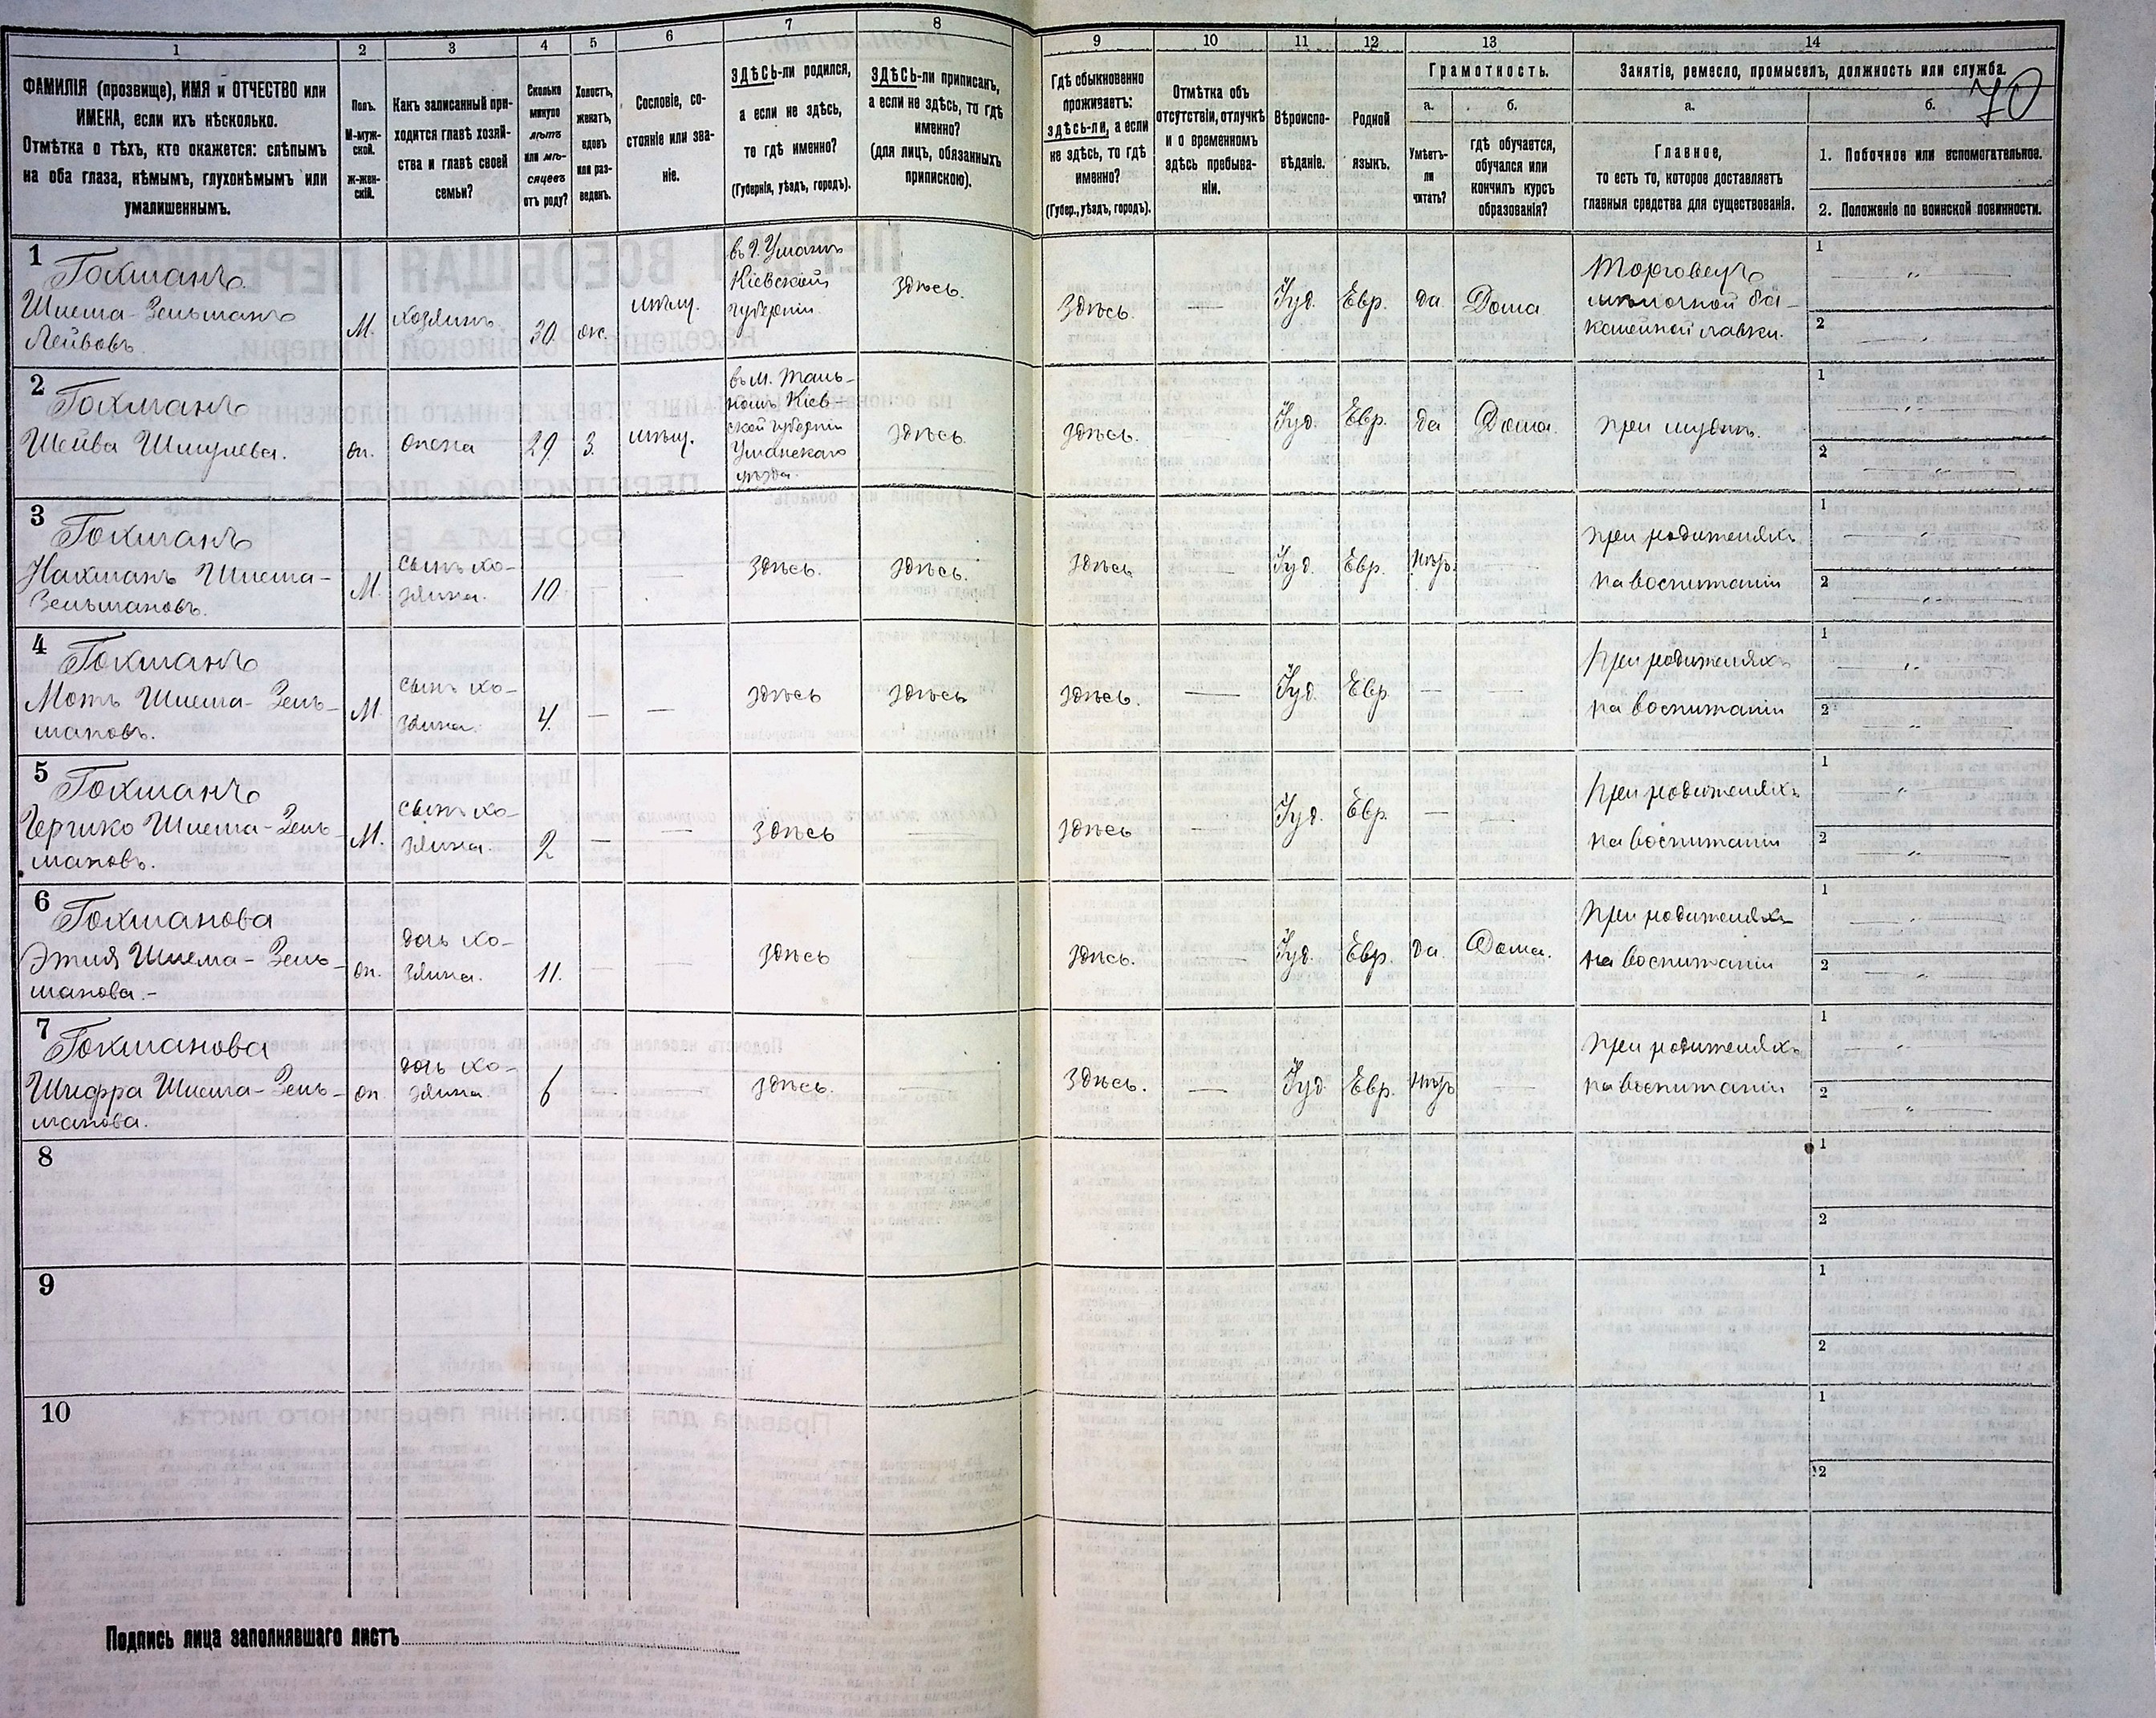 1 2 3 4 5 6 7 8 9 10 11 12 13 14
ФАМИЛІЯ (прозвище), ИМЯ и ОТЧЕСТВО или
ИМЕНА, если ихъ нѣсколько.
Отмѣтка о тѣхъ, кто окажется: слѣпымъ
на оба глаза, нѣмымъ, глухонѣмымъ или
умалишеннымъ.
Полъ.
М-муж-
ской.
Ж-жен-
скій.
Какъ записанный при-
ходится главѣ хозяй-
ства и главѣ своей
семьи?
Сколько
минуло
лѣтъ
или мѣ-
сяцевъ
отъ роду?
Холостъ,
женатъ,
вдовъ
или раз-
веденъ.
Сословіе, со-
стояніе или зва-
ніе.
ЗДѢСЬ-ли родился,
а если не здѣсь,
то гдѣ именно?
(Губернія, уѣздъ, городъ).
ЗДѢСЬ-ли приписанъ,
а если не здѣсь, то гдѣ
именно?
(для лицъ, обязанныхъ
припискою).
Гдѣ обыкновенно
проживаетъ:
здѣсь-ли, а если
не здѣсь, то гдѣ
именно?
(Губер., уѣздъ, городъ).
Отмѣтка объ
отсутствіи, отлучкѣ
и о временномъ
здѣсь пребыва-
ніи.
Вѣроиспо-
вѣданіе.
Родной
языкъ.
Грамотность.
а.
Умѣетъ-
ли
читать?
б.
гдѣ обучается,
обучался или
кончилъ курсъ
образованія?
Занятіе, ремесло, промыселъ, должность или служба.
70
а.
Главное,
то есть то, которое доставляетъ
главныя средства для существованія.
б.
1. Побочное или вспомогательное.
2. Положеніе по воинской повинности.
1
Гохманъ
Шмета-Зельманъ
Лейбовъ.
М.
хозяинъ
30.
ж.
мѣщ.
въ г. Умани
Кіевской
губерніи
Здѣсь.
Здѣсь.
—
Іуд.
Евр.
да
Дома
Торговецъ
мѣлочной ба-
калейной лавки.
1 „
2 „
2
Гохманъ
Шейва Шмулева.
ж.
жена
29
З.
мѣщ.
въ м. Таль-
номъ Кіев-
ской губерніи
Уманскаго
уѣзда.
Здѣсь.
Здѣсь.
—
Іуд.
Евр.
да
Дома.
при мужѣ.
1 „
2 „
3
Гохманъ
Нахманъ Шмета-
Зельмановъ.
М.
сынъ хо-
зяина.
10.
—
—
Здѣсь.
Здѣсь.
Здѣсь
—
Іуд.
Евр.
нѣтъ.
—
при родителяхъ
на воспитаніи
1 „
2 „
4
Гохманъ
Моть Шмета-Зель-
мановъ.
М.
сынъ хо-
зяина.
4.
—
—
Здѣсь
Здѣсь
Здѣсь.
—
Іуд.
Евр.
—
—
При родителяхъ
на воспитаніи
1 „
2 „
5
Гохманъ
Гершко Шмета-Зель-
мановъ.
М.
сынъ хо-
зяина.
2
—
—
Здѣсь
—
Здѣсь
—
Іуд.
Евр.
—
—
При родителяхъ
на воспитаніи
1 „
2 „
6
Гохманова
Этля Шмета-Зель-
манова.-
ж.
дочь хо-
зяина.
11.
—
—
Здѣсь
—
Здѣсь.
—
Іуд.
Евр.
да.
Дома.
При родителяхъ
на воспитаніи
1 „
2 „
7
Гохманова
Шифра Шмета-Зель-
манова.
ж.
дочь хо-
зяина.
6
—
—
Здѣсь.
—
Здѣсь.
—
Іуд.
Евр.
нѣтъ
—
При родителяхъ
на воспитаніи
1 „
2 „
8
1
2
9
1
2
10
1
2
Подпись лица заполнявшаго листъ